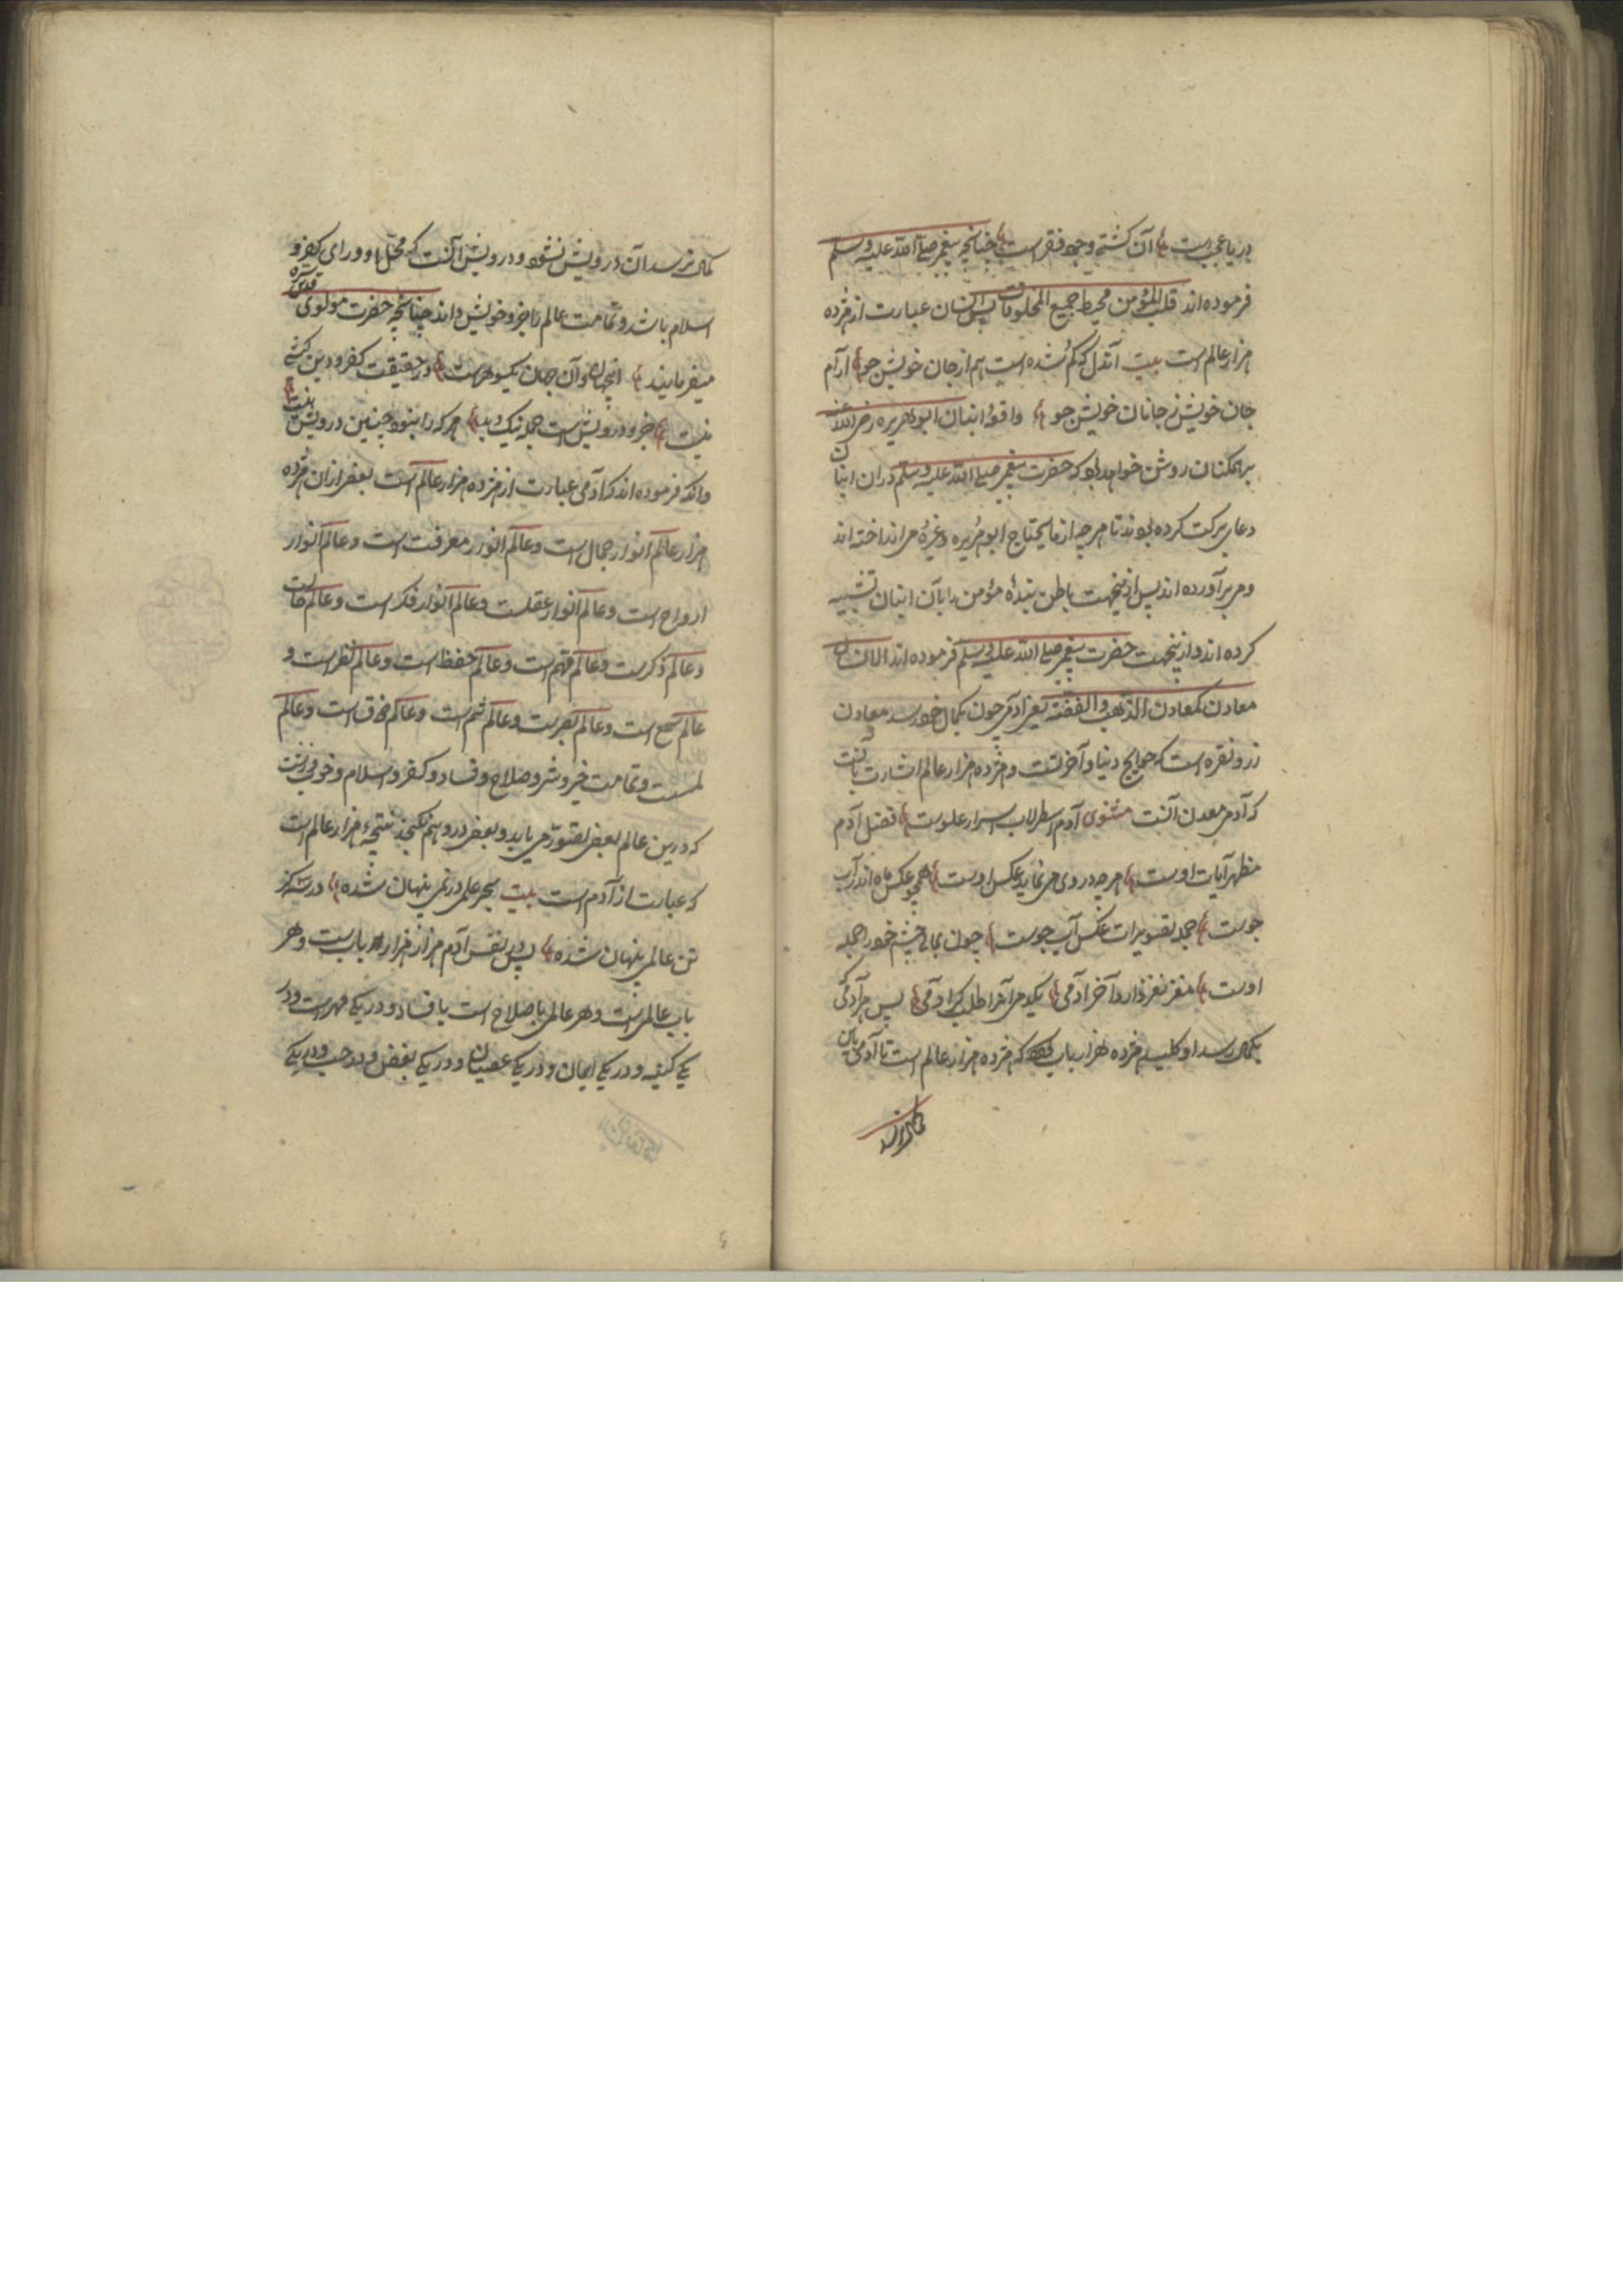 دریا عجبست آن کشتی وجود فقر است چنانچه پیغمبر صلی الله علیه وسلم
فرموده اند قلب المؤمن محیط جمیع المخلوقات پس انسان عبارت از هژده
هزار عالم است بیت آندل که گم شده است هم از جان خویش جو آرام
جان خویش ز جانان خویش جو واقعهٔ انبان ابو هریره رضی الله عنه
بر همکنان روشن خواهد بود که حضرت پیغمبر صلی الله علیه وسلم در آن انبان
دعای برکت کرده بودند تا هر چه از ما یحتاج ابو هریره وغیره می انداخته اند
و می بر آورده اند پس ازینجهت باطن بندهٔ مؤمن را بآن انبان تشبیه
کرده اند و ازینجهت حضرت پیغمبر صلی الله علیه وسلم فرموده اند الانسان
معادن کمعادن الذهب والفضة یعنی آدمی چون بکمال خود رسد معادن
زر و نقره است که حوایج دنیا و آخرتست و هژده هزار عالم اشارت بآنست
که آدمی معدن آنست مثنوی آدم اسطرلاب اسرار علوست فضل آدم
مظهر آیات اوست هر چه در وی می نماید عکس اوست همچو عکس ماه اندر آب
جوست جمله تصویرات عکس آب جوست چون بمالی چشم خود را جمله
اوست مغز نغز دارد آخر آدمی یکدمی آنرا طلب کر آدمی پس هر آدمی که
بکمال رسد او کلید هژده هزار باب که هژده هزار عالم است تا آدمی باین
کمال نرسد
کمال نرسد آن درویش نشود و درویش آنست که محل او ورای کفر و
اسلام باشد و تمامت عالم را جزو خویش داند چنانچه حضرت مولوی قدس سره
میفرمایند اینجهان و آن جهان یک گوهرست در حقیقت کفر و دین کیشی
نیست جزو درویش است جمله نیک و بد هر که را نبود چنین درویش نیست
و آنکه فرموده اند که آدمی عبارت از هژده هزار عالم است بعضی از آن هژده
هزار عالم انوار جمال است و عالم انوار معرفت است و عالم انوار
ارواح است و عالم انوار عقلست و عالم انوار فکر است و عالم
و عالم ذکرست و عالم فهم است و عالم حفظ است و عالم نظر است و
عالم سمع است و عالم بصرست و عالم شم است و عالم ذوق است و عالم
لمسست و تمامت خیر و شر و صلاح و فساد و کفر و اسلام و خوب و زشت
که درین عالم بعضی تصور می یابد و بعضی در وهم نکنجد نتیجهٔ هزار عالم است
که عبارت از آدم است بیت بحر علمی در نمی پنهان شده در سه گز
تن عالمی پنهان شده پس در نفس آدم هزار هزار باب است و هر
باب عالمی است و هر عالمی با صلاح است یا فساد و در یکی مهر است و در
یکی کینه و در یکی ایمان و در یکی عصیان و در یکی بغض و در حب و در یکی